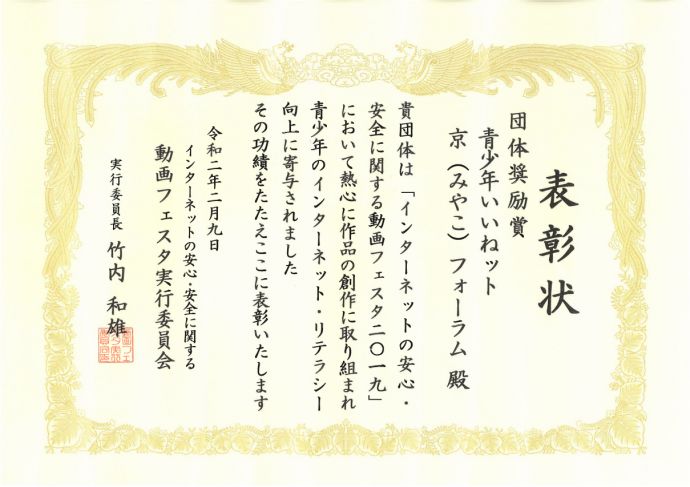 表彰状
団体奨励賞
青少年いいねット
京（みやこ）フォーラム 殿
貴団体は「インターネットの安心・
安全に関する動画フェスタ二〇一九」
において熱心に作品の創作に取り組まれ
青少年のインターネット・リテラシー
向上に寄与されました
その功績をたたえここに表彰いたします
令和二年二月九日
インターネットの安心・安全に関する
動画フェスタ実行委員会
実行委員長 竹内 和雄